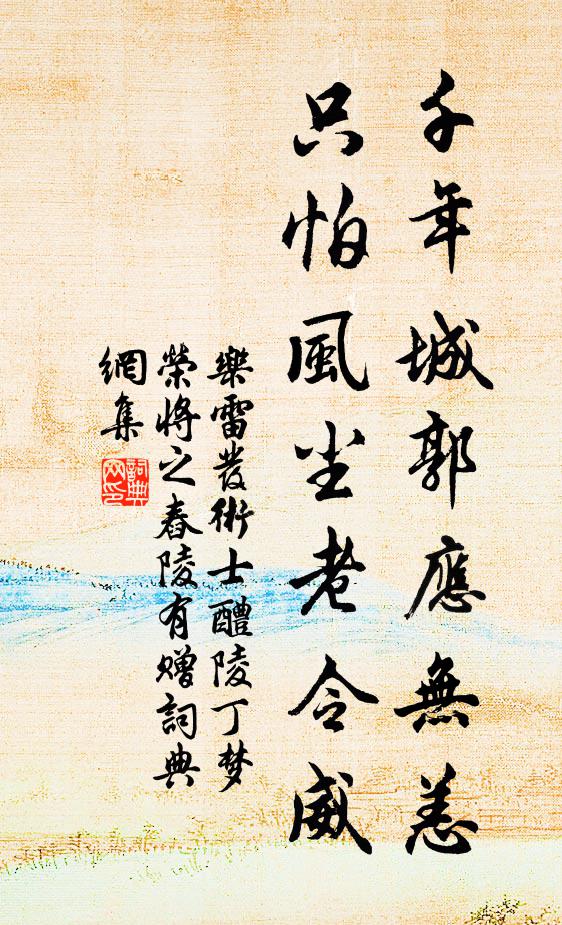 千年城郭應無恙
只怕風尘老令威
樂雷發術士醴陵丁梦
榮将之舂陵有赠詞典
網集
詞典网印